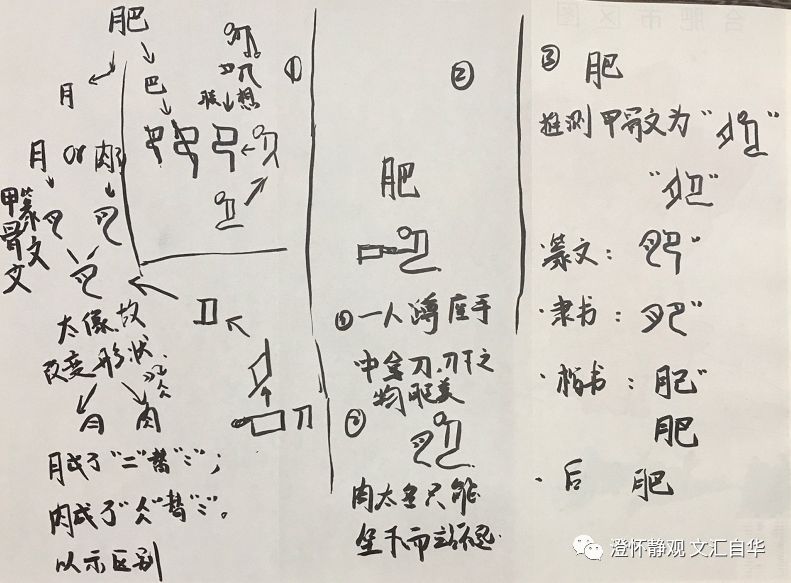 肥
月 巴
月 or 肉
联想
甲骨文
篆文
太像,故
改变形状
月 肉
月成了"二"替"⺀";
肉成了"仌"替"⺀"。
以示区别
刀
①
②
肥
① 一人蹲座手
中拿刀,刀下之
物肥美
②
肉太多只能
坐下而站不起
③ 肥
推测甲骨文为
·篆文:
·隶书:
·楷书:肥
肥
·后 肥
澄怀静观 文汇自华